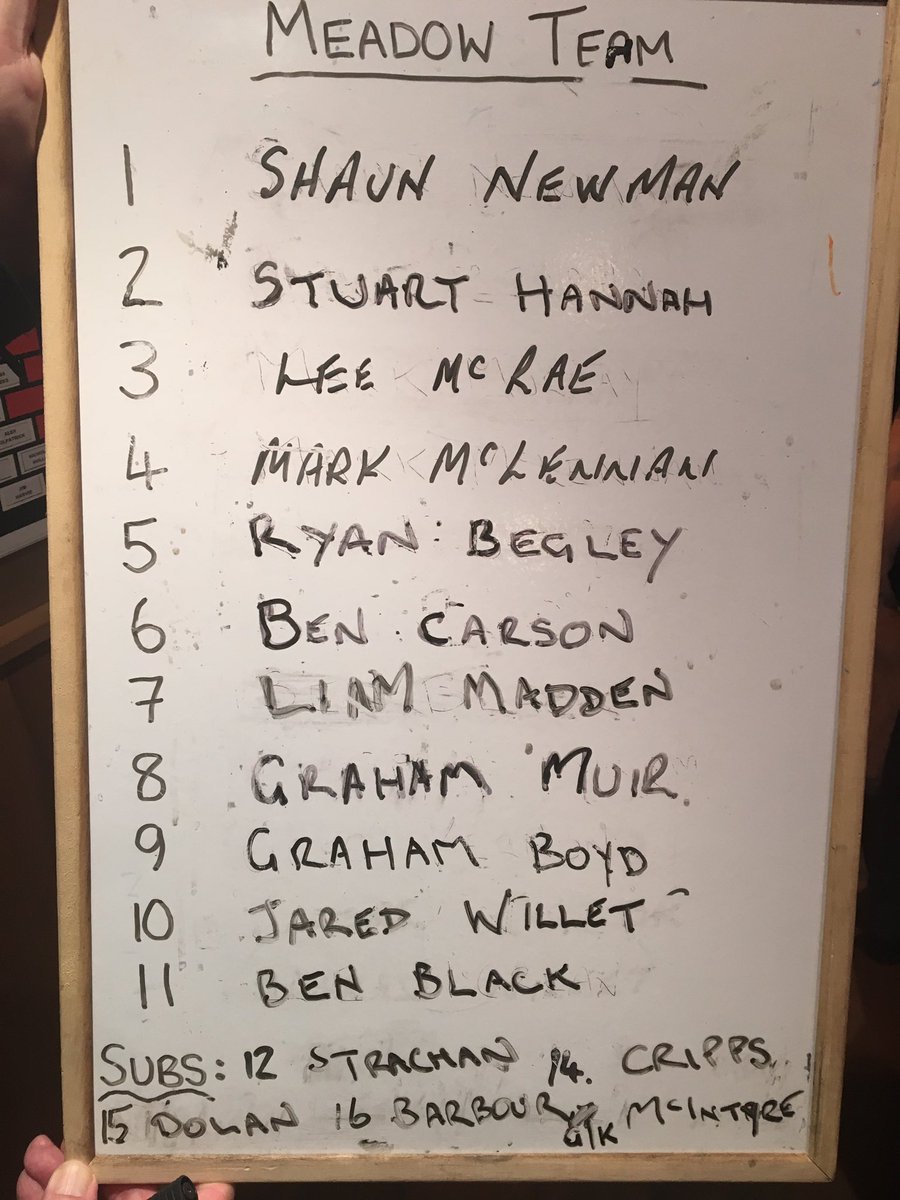 MEADOW TEAM
1 SHAUN NEWMAN
2 STUART HANNAH
3 LEE McRAE
4 MARK McLENNAN
5 RYAN BEGLEY
6 BEN CARSON
7 LIAM MADDEN
8 GRAHAM MUIR
9 GRAHAM BOYD
10 JARED WILLET
11 BEN BLACK
SUBS: 12 STRACHAN 14. CRIPPS
15 DOLAN 16 BARBOUR G/K McINTYRE